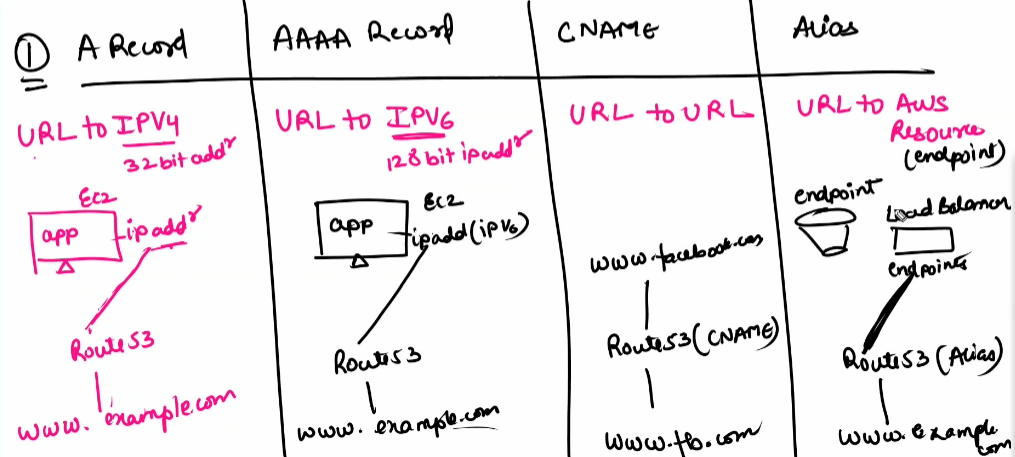 ① A Record
URL to IPV4
32 bit addr
EC2
app
ip addr
Route 53
www.example.com
AAAA Record
URL to IPV6
128 bit ip addr
EC2
app
ip add (ipv6)
Route 53
www.example.com
CNAME
URL to URL
www.facebook.com
Route 53 (CNAME)
www.fb.com
Alias
URL to AWS
Resource
(endpoint)
endpoint
Load Balancer
endpoints
Route 53 (Alias)
www.example.
com